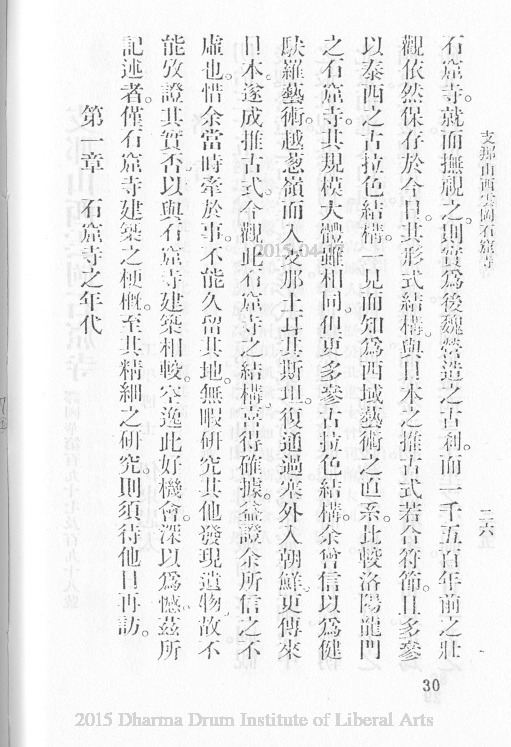 支那山西雲岡石窟寺
二六
石窟寺。就而撫視之。則實爲後魏營造之古刹。而一千五百年前之壯
觀依然保存於今日。其形式結構。與日本之推古式若合符節。且多參
以泰西之古拉色結構。一見而知爲西域藝術之直系。比較洛陽龍門
之石窟寺。其規模大體雖相同。但更多參古拉色結構。余曾信以爲健
馱羅藝術。越葱嶺而入支那土耳其斯坦。復通過塞外入朝鮮。更傳來
日本。遂成推古式。今觀此石窟寺之結構。喜得確據。益證余所信之不
虛也。惜余當時牽於事。不能久留其地。無暇研究其他發現遺物。故不
能攷證其實否。以與石窟寺建築相較。空逸此好機會。深以爲憾。茲所
記述者。僅石窟寺建築之梗槪。至其精細之研究。則須待他日再訪。
第一章 石窟寺之年代
30
2015 Dharma Drum Institute of Liberal Arts